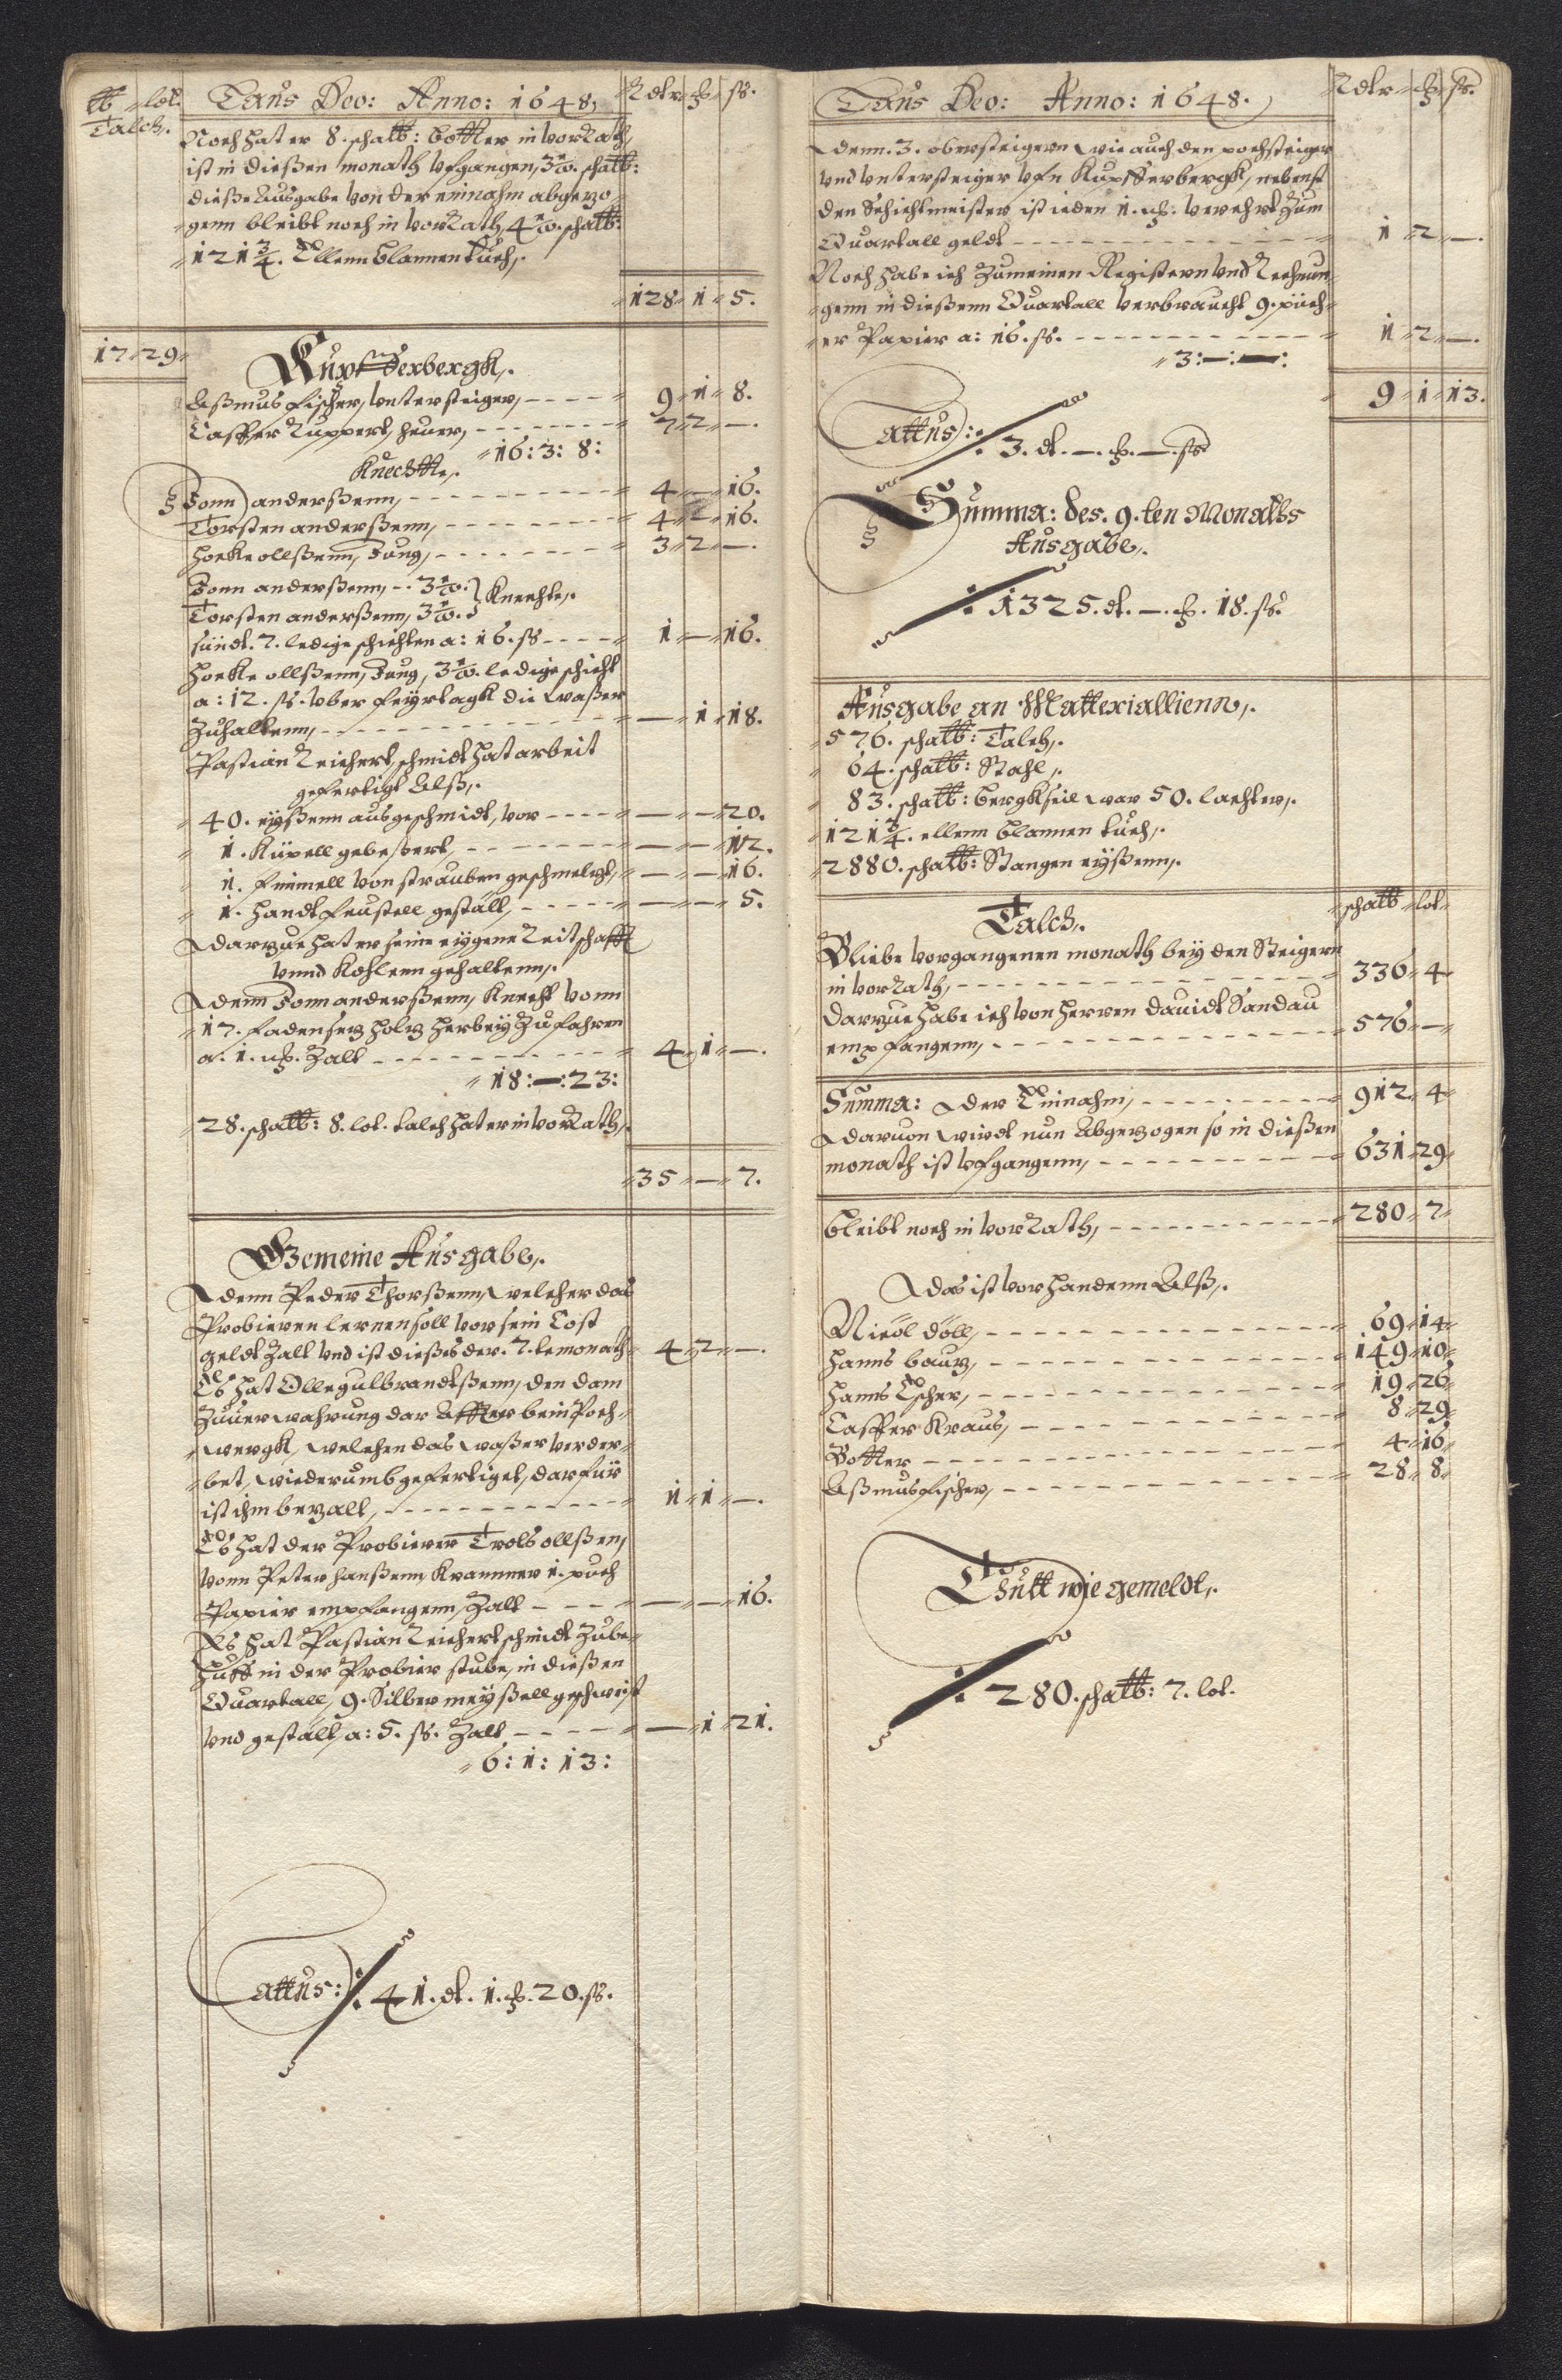 ℔ lot. Laus Deo: Anno: 1648, Rdlr ß.
Talch.
Noch hat er 8. schalb: botter in vorRath,
ist in dießen monath vfgangen, 3½. schalb:
dieße Ausgabe von der einnahm abgezo
genn bleibt noch in vorRath, 4½. schalb:
121¾. Ellenn blannen tuch,.
128 1 5.
17 29
Kupfferbergk,.
Aßmus fischer, vntersteiger, 9 1 8.
Casper Ruppert, heuer, 7 2 —.
16: 3: 8:
Knechtte,.
Jonn anderßenn, 4 — 16.
Torsten anderßenn, 4 — 16.
hocke ollßenn, Jung, 3 2 —.
Jonn anderßenn, 3½. } Knechte,.
Torsten anderßenn, 3½.
sündt. 7. ledige schichten a: 16. ß 1 — 16.
hocke ollßenn, Jung, 3½. ledige schicht
a: 12. ß. vber feyrtagk die waßer
Zuhaltenn, — 1 18.
Pastian Reichert, schmidt hat arbeit
gefertigt Alß,.
40. eyßenn ausgeschmidt, vor — — 20.
1. Küpell gebeßert, — — 12.
1. fimmell von strauben geschmeltzt, — — 16.
1. handt feustell gestält, — — 5.
darzue hat er seine eygene Reitschafft
vnnd Kohlenn gehaltenn,.
denn Jonn anderßenn, Knecht vonn
17. faden setz holtz herbey Zu fahren
a: 1. Zalt 4 1 —.
18: —: 23:
28. schalb: 8. lot. talch hat er in vorRath,
35 — 7.
Gemeine Ausgabe,.
denn Peder Thorßenn, welcher das
Probieren lernen soll vor sein Cost
geldt Zalt vnd ist dießes der. 7. te monath 4 2 —.
Es hat Olle gulbrandtßenn, den dam
Zuuerwahrung der Affter beim Poch
wergk, welchen das waßer verder
bet, wiederumb gefertiget, darfür
ist ihm bezalt, 1 1 —.
Es hat der Probierer Trols ollßen,
vonn Peter hanßenn Krammer 1. puch
Papier empfangenn, Zalt — — 16.
Es hat Pastian Reichert schmidt Zube
huff in der Probier stube, in dießen
Quartall, 9. Silber meyßell geschweist
vnd gestält, a: 5. ß. Zalt — 1 21.
6: 1: 13:
Lattus: 41. dl. 1. 20. ß.
Laus Deo: Anno: 1648. Rdlr ß.
denn. 3. obersteigern wie auch den pochsteiger
vnd vntersteiger vfn Kupfferbergk, nebenst
den Schichtmeister ist ieden 1. verehrt Zum
Quartall geldt 1 2 —.
Noch habe ich Zu meinen Registern vnd Rechnun
genn in dießenn Quartall verbraucht 9. püch
er Papier a: 16. ß. 1 2 —.
3: —: —:
9 1 13.
Lattus: 3. dl. —. —. ß
Summa: des. 9. ten Monatts
Ausgabe,.
1325. dl. —. 18. ß.
Ausgabe an Matterialliena,.
576. schalb: Talch,.
64. schalb: Stahl,.
83. schalb: bergkseil war 50. lachter,.
121¾. ellenn blannen tuch,.
2880. schalb: Stangen eyßenn,.
Talch,. schalb lot
Bliebe vorgangenen monath bey den Steigern
in vorRath, 336 4
darzue habe ich von herren dauidt Sandau
empfangenn, 576 —
Summa: der Einahm, 912 4
daruon wirdt nun Abgezogen so in dießen
monath ist vfgangenn, 631 29
bleibt noch in vorRath, 280 7
das ist vorhandenn Alß,.
Nicol döll, 69 14
hanns bautz, 149 10
hanns Escher, 19 26
Casper Kraus, 8 29
Botter 4 16
Aßmus fischer, 28 8
Thutt wie gemeldt,.
280. schalb: 7. lot.